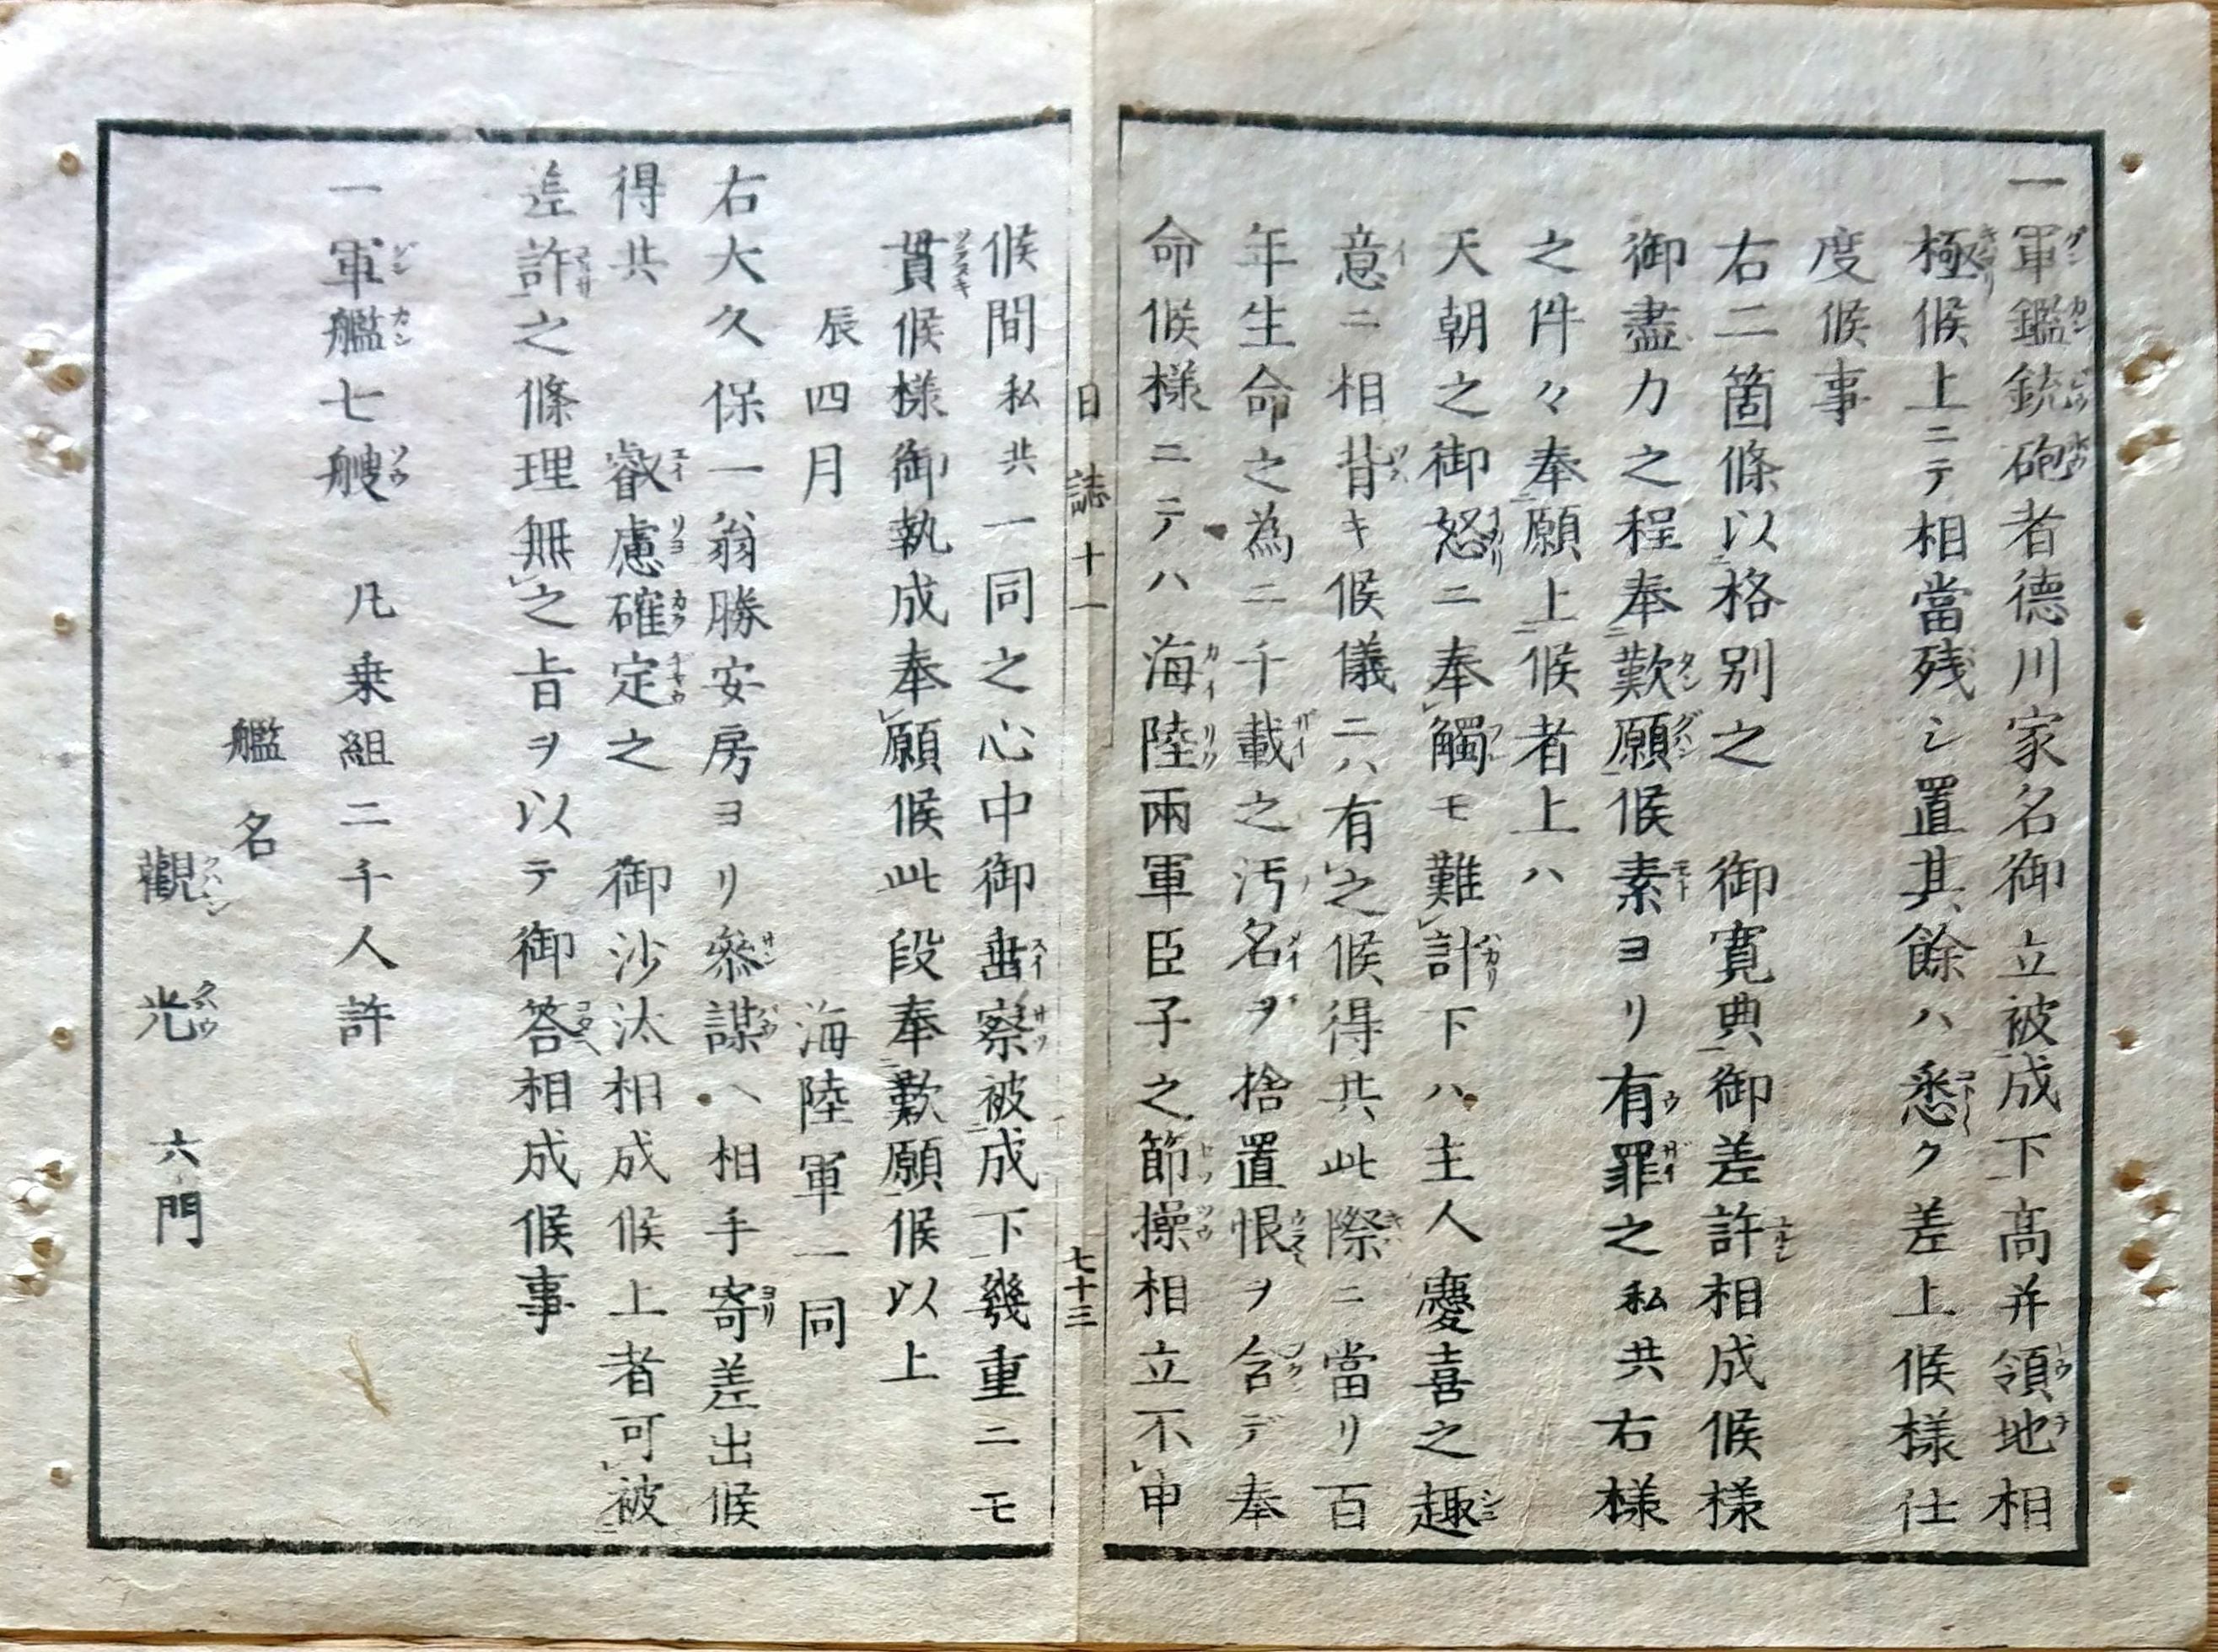 一軍鑑銃砲者德川家名御立被成下高并領地相
極候上ニテ相當残シ置其餘ハ悉ク差上候様仕
度候事
右二箇條以格別之　御寛典御差許相成候様
御盡力之程奉歎願候素ヨリ有罪之私共右様
之件々奉願上候者上ハ
天朝之御怒ニ奉觸モ難計下ハ主人慶喜之趣
意ニ相背キ候儀ニハ有之候得共此際ニ當リ百
年生命之為ニ千載之汚名ヲ捨置恨ヲ含デ奉
命候様ニテハ海陸兩軍臣子之節操相立不申
日誌十一　七十三
候間私共一同之心中御垂察被成下幾重ニモ
貫候様御執成奉願候此段奉歎願候以上
辰四月　海陸軍一同
右大久保一翁勝安房ヨリ參謀ヘ相手寄差出候
得共　叡慮確定之　御沙汰相成候上者可被
差許之條理無之旨ヲ以テ御答相成候事
一軍艦七艘　凡乗組二千人許
艦名
觀光　六門